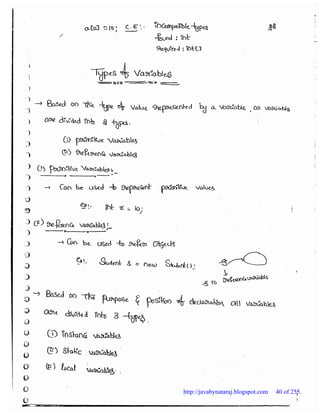 a[0] = 10; C.E:- incompatible types
found : int
required : int[]
Types of Variables
→ Based on the type of value represented by a variable, all variables
are divided into 2 types.
(i) primitive variables
(2) reference variables
(1) primitive variables:-
→ Can be used to represent primitive values
Ex:- int x = 10;
(2) reference variables:-
→ Can be used to refer objects
Ex:- Student s = new Student();
s
s is reference variable
→ Based on the purpose & position of declaration, all variables
are divided into 3 types.
(1) instance variables
(2) static variables
(3) local variables.
http://javabynataraj.blogspot.com 40 of 255.